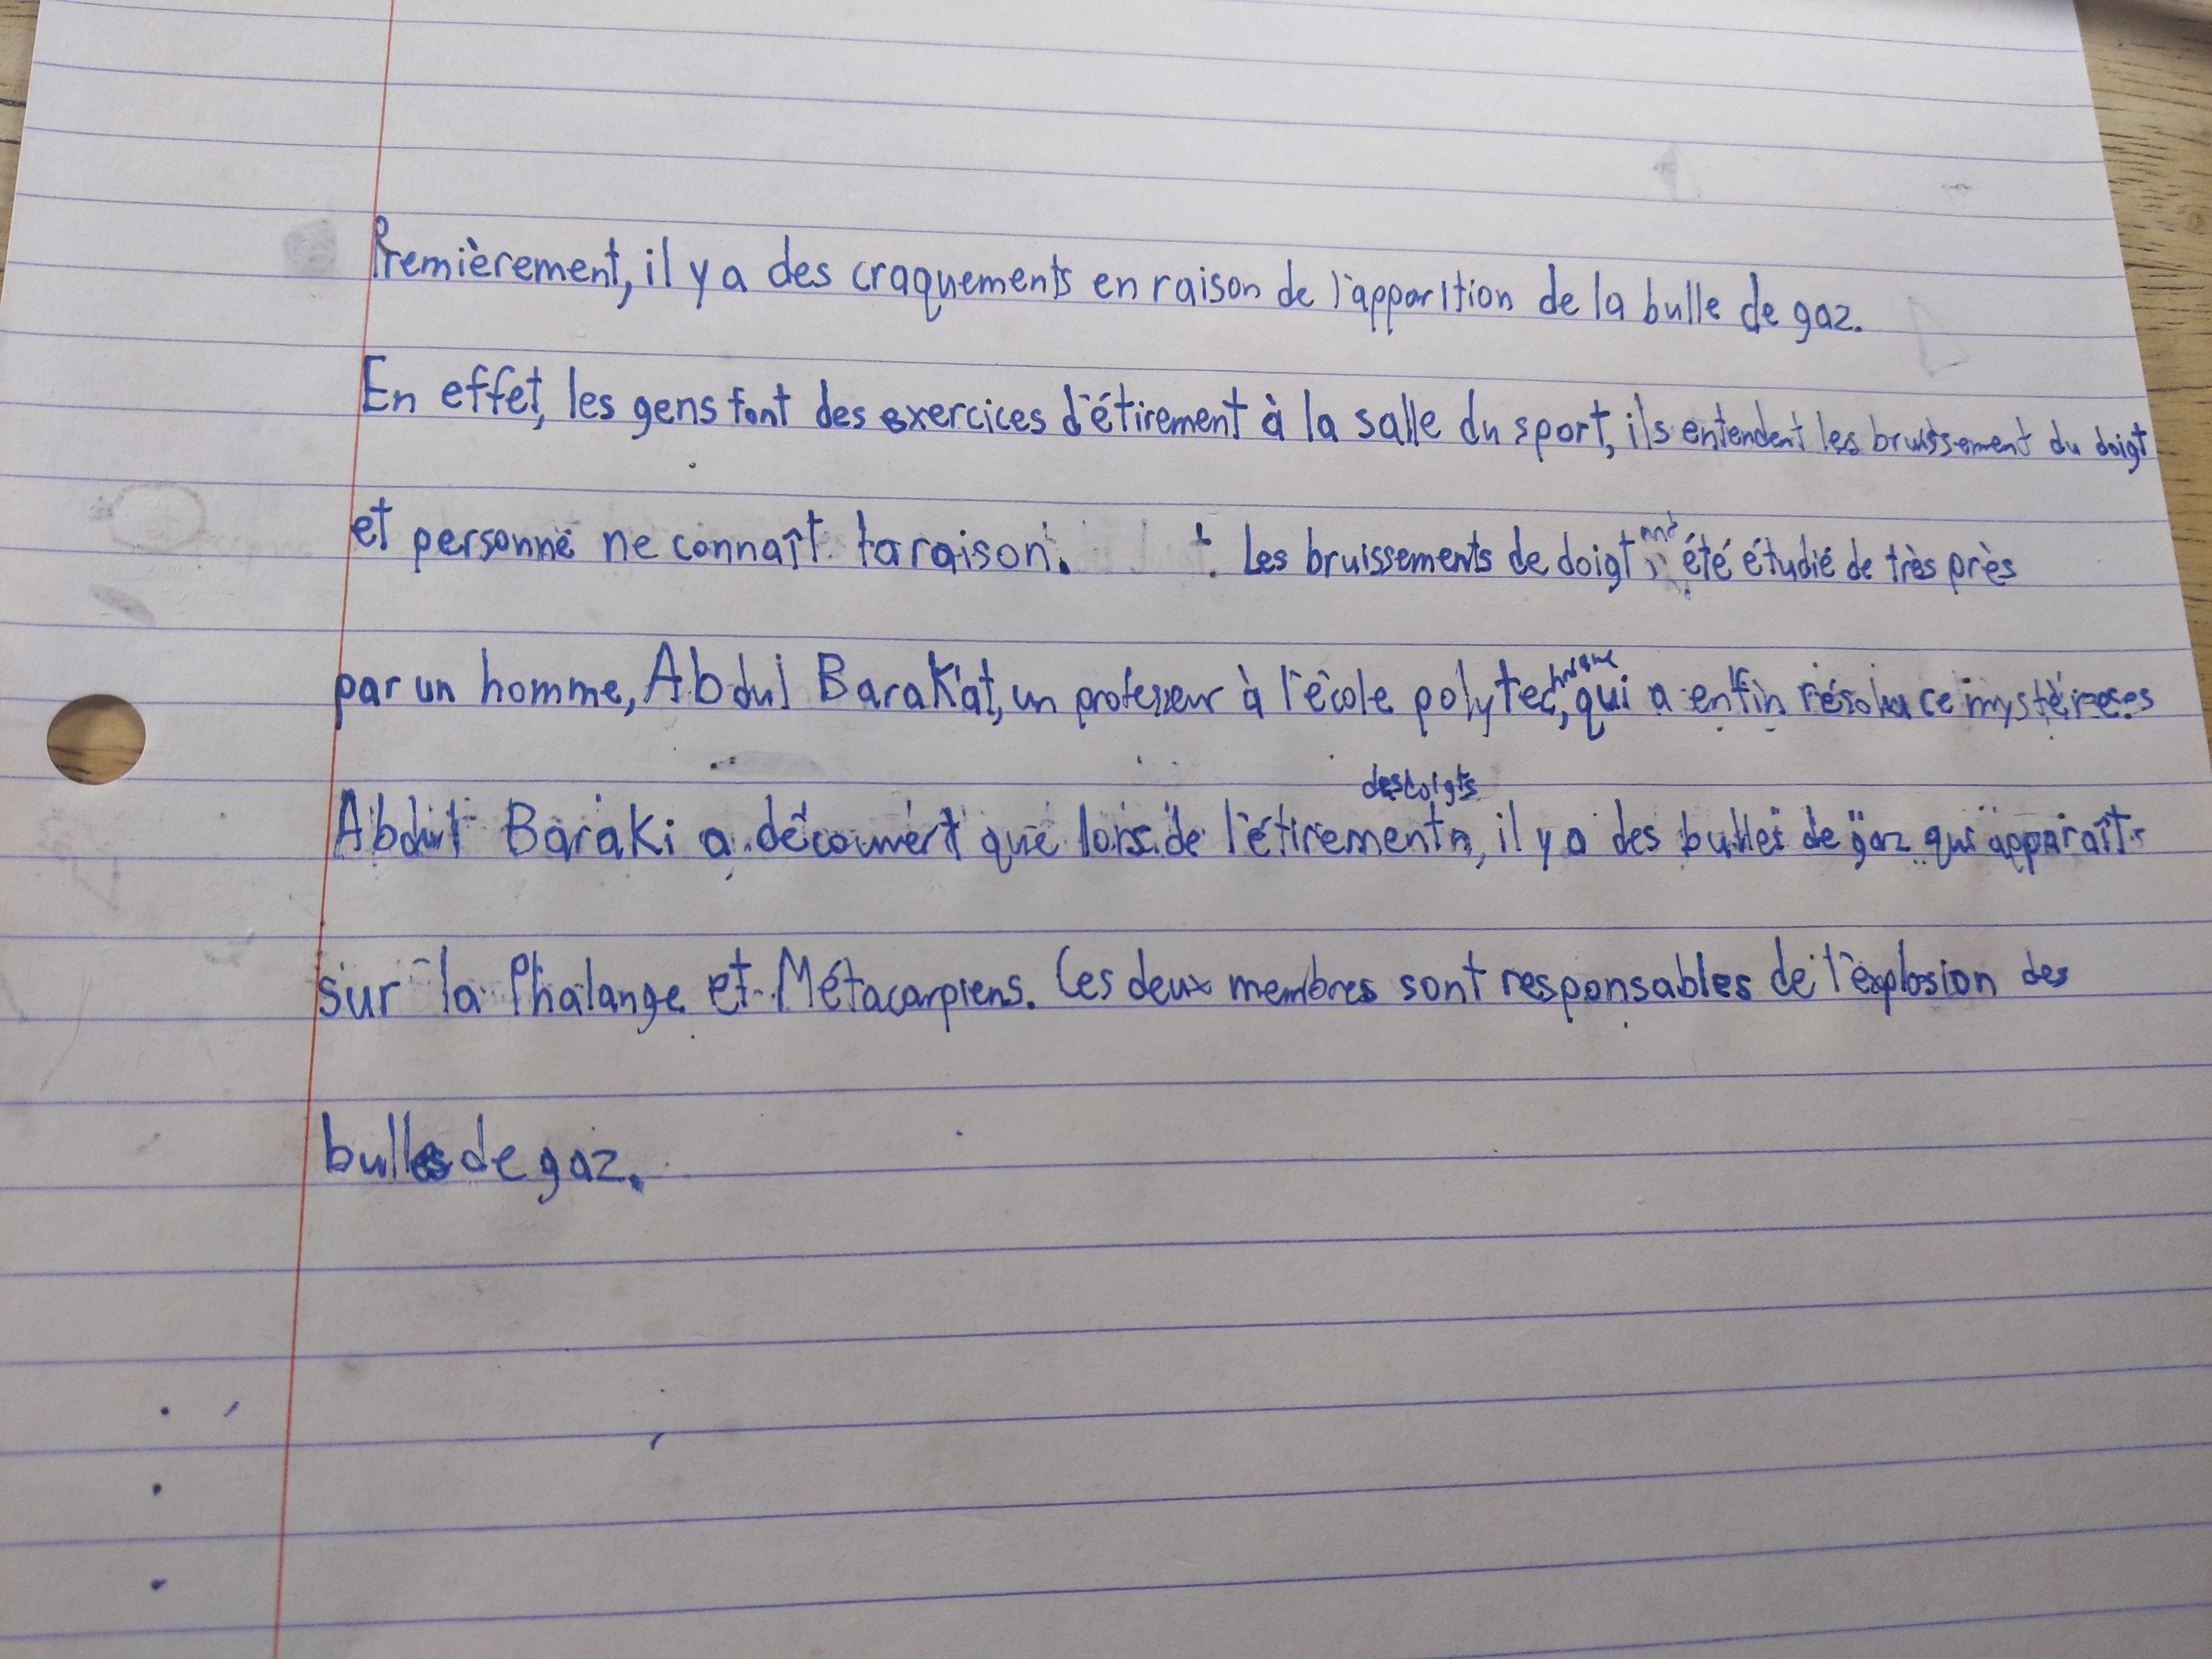 Premièrement, il y a des craquements en raison de l'apparition de la bulle de gaz.
En effet, les gens font des exercices d'étirement à la salle du sport, ils entendent les bruissement du doigt
et personne ne connaît la raison. Les bruissements de doigt été étudié de très près
par un homme, Abdul Barakat, un professeur à l'école polytechnique, qui a enfin résolu ce
Abdul Baraki a découvert que lors de l'étirement des doigts, il y a des bulles de gaz qui apparaît
sur la Phalange et Métacarpiens. Ces deux membres sont responsables de l'explosion des
bulles de gaz.